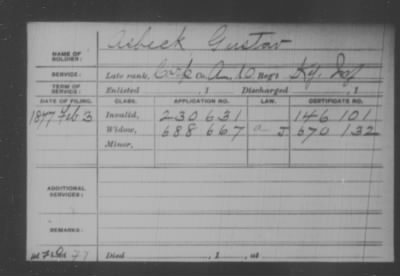 NAME OF SOLDIER: Asbeck, Gustav
SERVICE: Late rank, Corp Co. A, 10 Reg't Ky. Inf
TERM OF SERVICE: Enlisted , 1 Discharged , 1
DATE OF FILING. CLASS. APPLICATION NO. LAW. CERTIFICATE NO.
1877 Feb 3 Invalid, 230 631 146 101
Widow, 688 667 a J 670 132
Minor,
ADDITIONAL SERVICES:
REMARKS:
Died , 1 , at